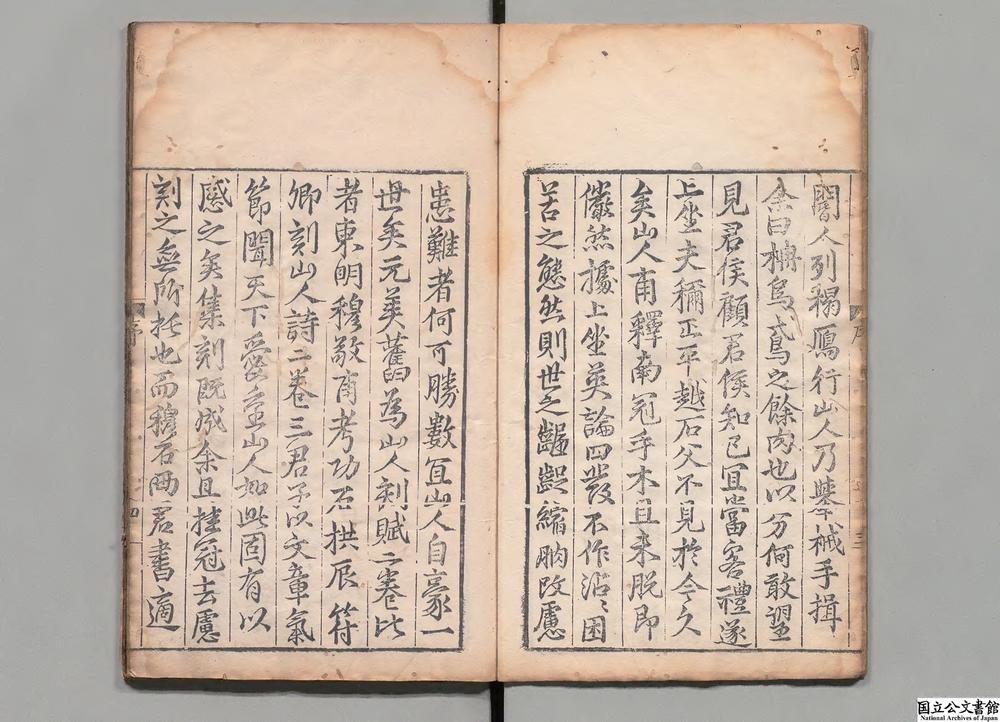 閽人列榻鴈行山人乃舉械手揖
余曰柟烏鳶之餘肉也以分何敢望
見君侯顧君侯知已宜當客禮遂
上坐夫禰正平越石父不見於今久
矣山人甫釋南冠手木且未脫即
儼然據上坐英論四發不作沾〻困
苦之態然則世之齷齪縮朒改慮
序 三
序 四
患難者何可勝數宜山人自豪一
世矣元美舊為山人刻賦二卷比
者東明穆敬甫考功石拱辰符
卿刻山人詩二卷三君子以文章氣
節聞天下愛重山人如此固有以
感之矣集刻既成余且挂冠去慮
刻之無所托也而穆石兩君書適
国立公文書館
National Archives of Japan